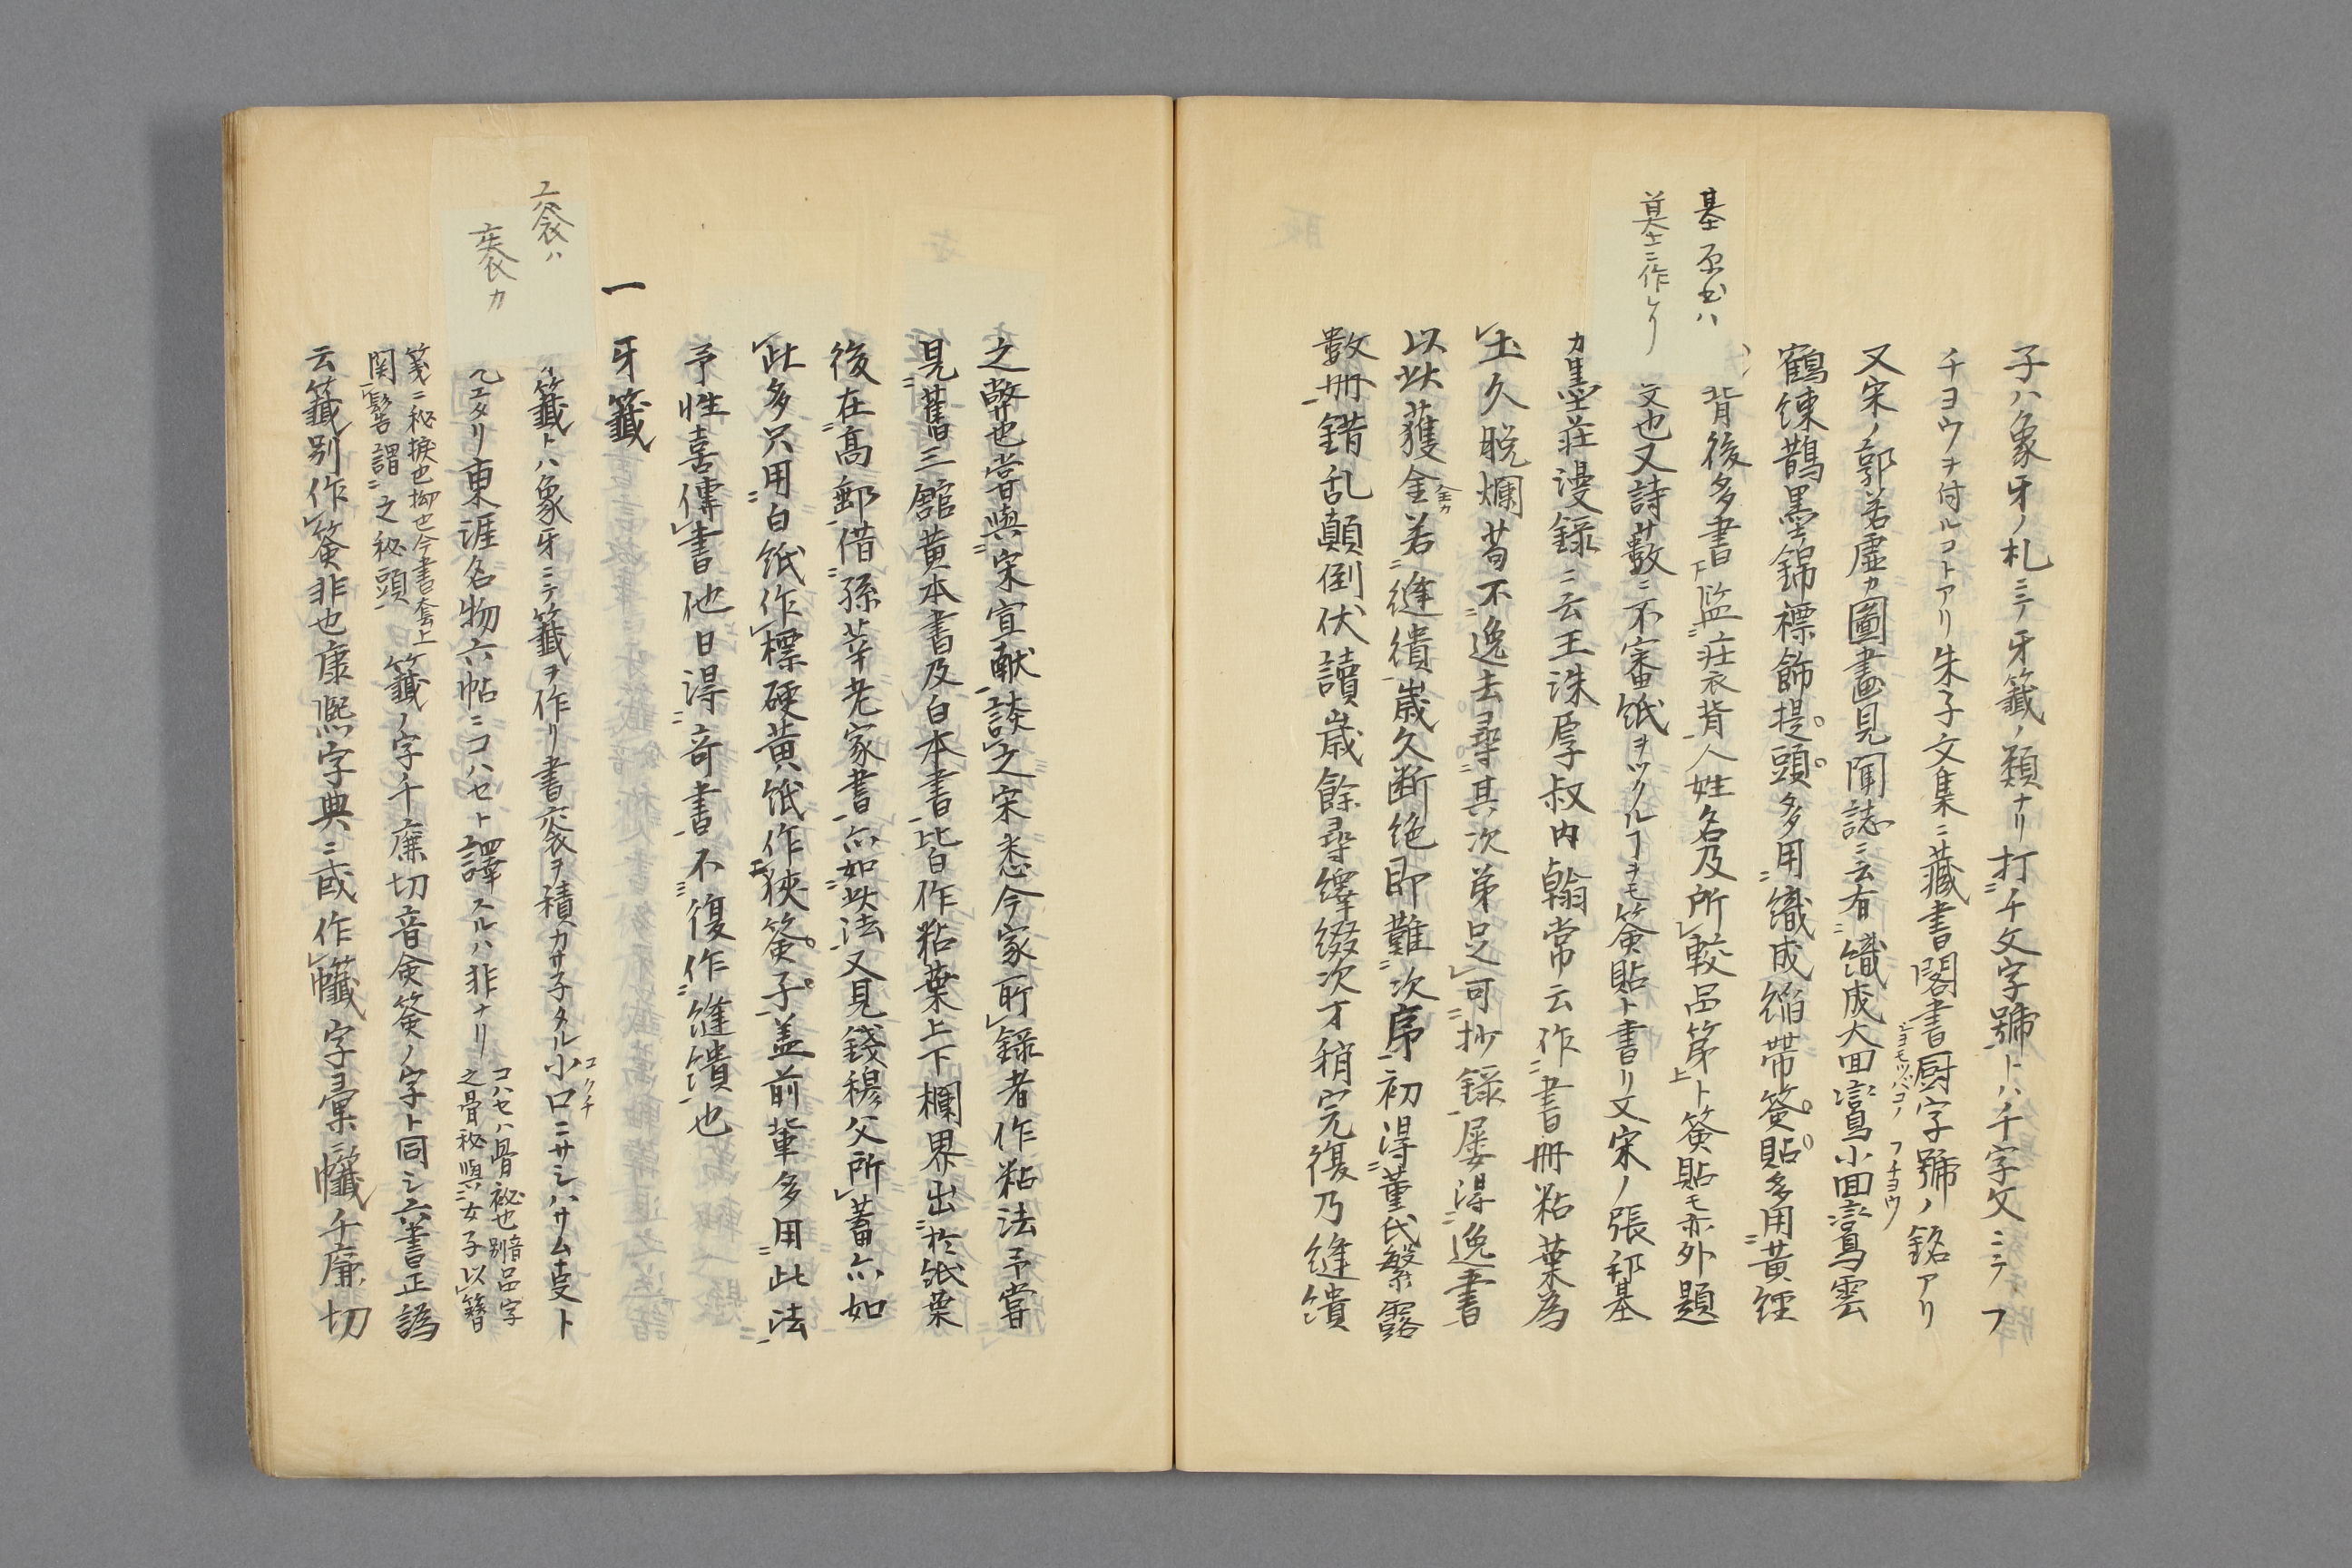 子ハ象牙ノ札ニテ牙籤ノ類ナリ打チ文字號トハ千字文ニテフ
チヨウヲ付ルコトアリ朱子文集ニ藏書閣書厨字號ノ銘アリ
シヨモツバコノ フチヨウ
又宋ノ郭若虚カ圖畫見聞誌ニ云有織成大回鸞小回鸞雲
鶴練鵲墨錦褾飾提頭多用織成綬帶簽貼多用黄経
基原書ハ
墓ニ作レリ
背後多書監莊背人姓名及所較品第上下ト簽貼モ亦外題
文也又詩藪ニ不審紙ヲツクルコヲモ簽貼ト書リ又宋ノ張邦基
カ墨荘漫録ニ云王洙厚叔内翰常云作書冊粘葉為
上久脱爛苟不逸去尋其次第足可抄録屡得逸書
以此獲全若縫繢歳久断絶即難次序初得董氏繁露
全カ
數冊錯乱顛倒伏讀歳餘尋繹綴次才稍完復乃縫繢
之敝也嘗與宋宣献談之宋悉今家所録者作粘法予嘗
見舊三館黄本書及白本書皆作粘葉上下欄界出於紙葉
後在高郵借孫莘老家書亦如此法又見錢穆父所蓄亦如
此多只用白紙作標硬黄紙作狹簽子盖前輩多用此法
予性喜傳書他日得奇書不復作縫繢也
一
牙籤
衮ハ
袠カ
籤トハ象牙ニテ籤ヲ作リ書衮ヲ積カサ子タル小口ニサシハサム叓ト
コクチ
乁エタリ東涯名物六帖ニコハセト譯スルハ非ナリ
コハセハ骨䤖也音別品字
之骨䤖與女子以簪
箋ニ秘捩也拗也今書套上
関髻謂之秘頭
籤ノ字千廉切音僉簽ノ字ト同シ六書正譌
云籤別作簽非也康熙字典ニ或作㡨字彙㡨千廉切